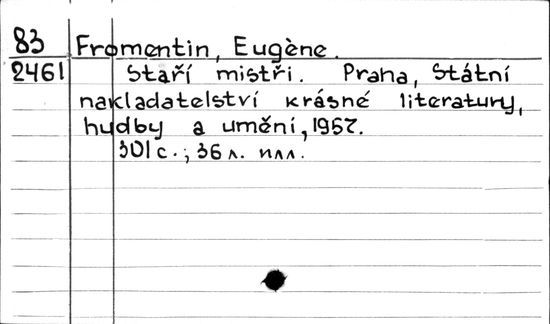 83 Fromentin, Eugène.
2461 Staří mistři. Praha, Státní
nakladatelství krásné literatury,
hudby a umění, 1957.
301 с.; 36 л. илл.